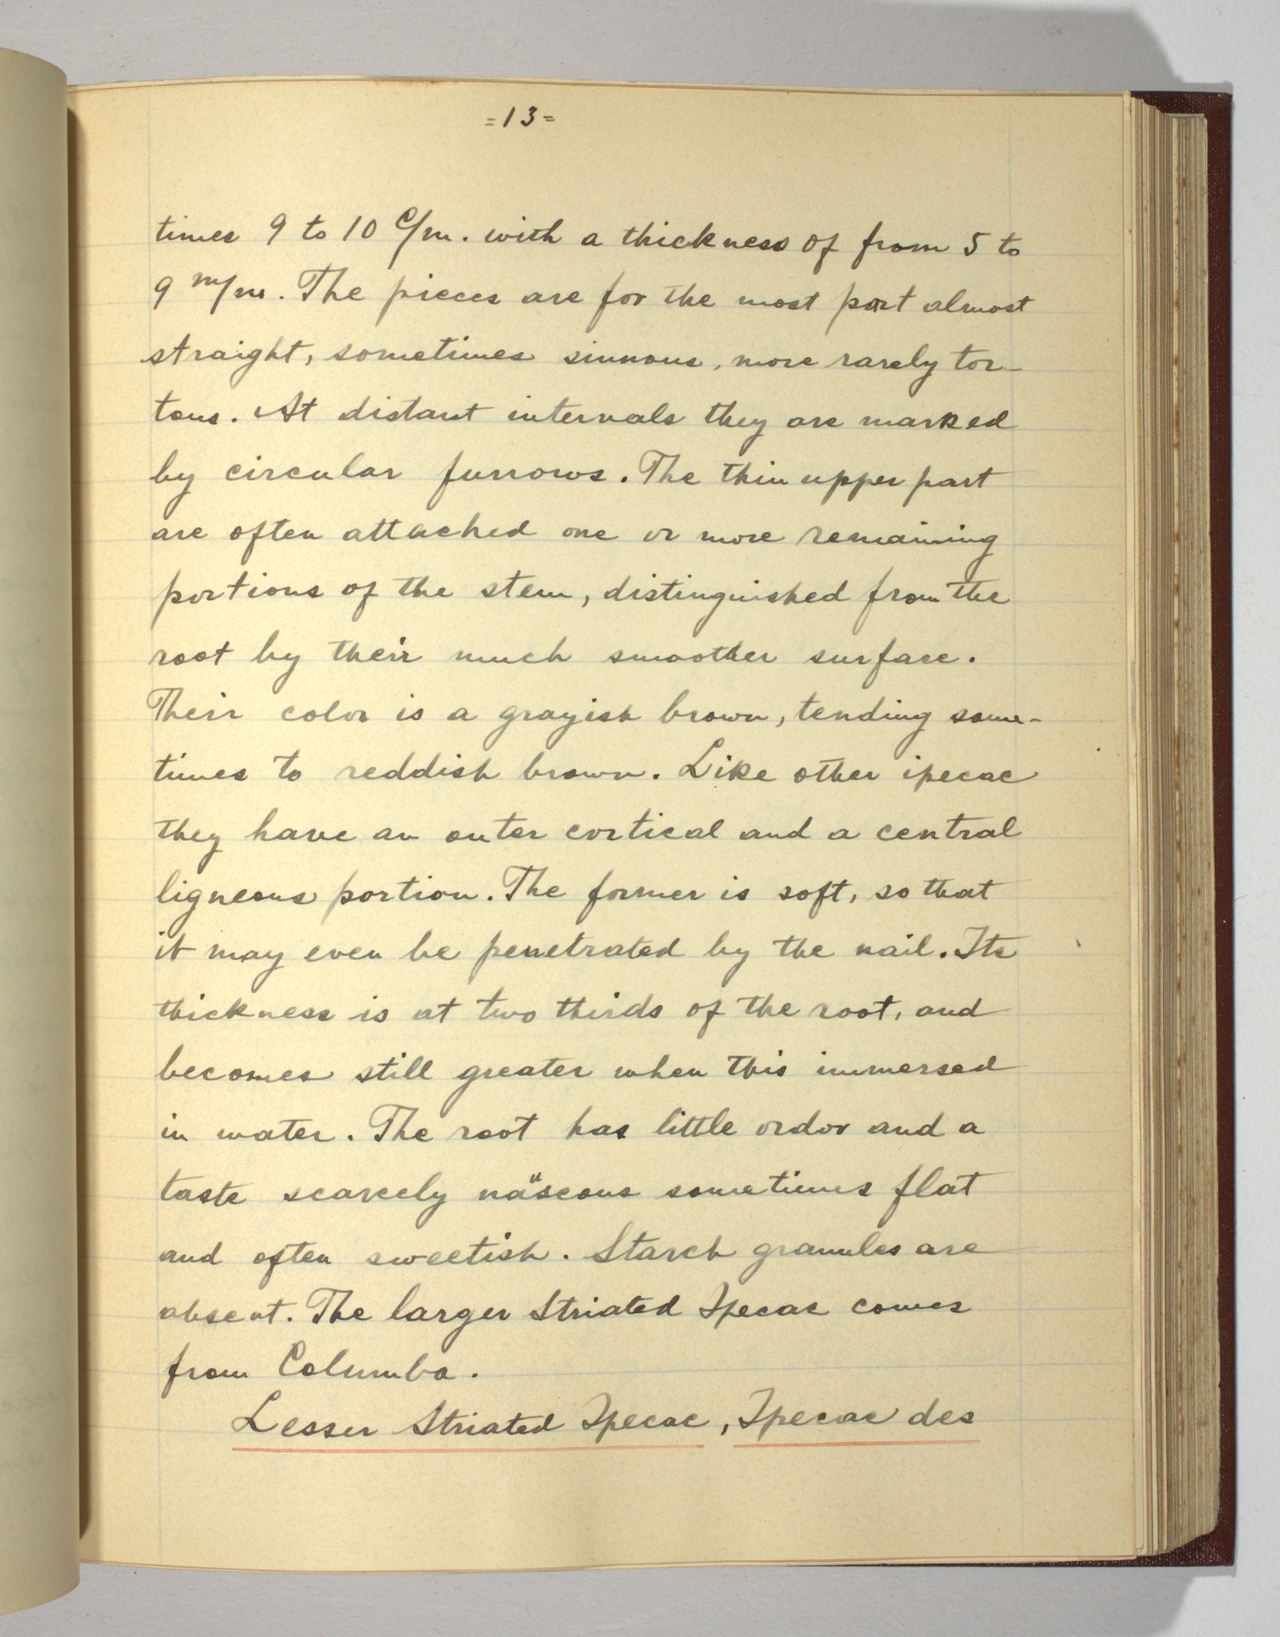 =13=
times 9 to 10 c/m. with a thickness of from 5 to
9 m/m. The pieces are for the most part almost
straight, sometimes sinnous, more rarely tor-
tous. At distant intervals they are marked
by circular furrows. The thin upper part
are often attached one or more remaining
portions of the stem, distinguished from the
root by their much smoother surface.
Their color is a grayish brown, tending some-
times to reddish brown. Like other ipecac
they have an outer cortical and a central
ligneous portion. The former is soft, so that
it may even be penetrated by the nail. Its
thickness is at two thirds of the root, and
becomes still greater when this immersed
in water. The root has little ordor and a
taste scarcely näseous sometimes flat
and often sweetish. Starch granules are
absent. The larger Striated Ipecac comes
from Columba.
Lesser Striated Ipecac, Ipecac des